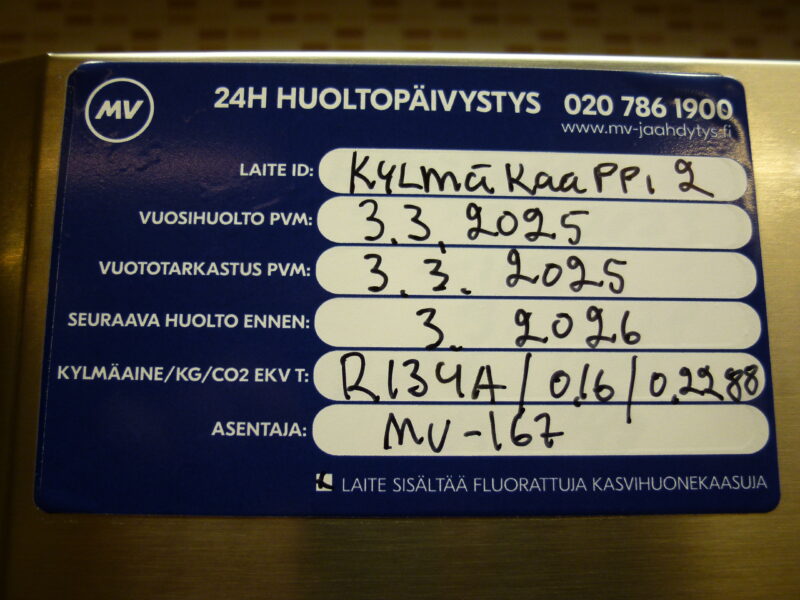 MV 24H HUOLTOPÄIVYSTYS 020 786 1900
www.mv-jaahdytys.fi
LAITE ID: KYLMÄKAAPPI 2
VUOSIHUOLTO PVM: 3.3.2025
VUOTOTARKASTUS PVM: 3.3.2025
SEURAAVA HUOLTO ENNEN: 3.2026
KYLMÄAINE/KG/CO2 EKV T: R134A/0.16/0.2288
ASENTAJA: MV-167
LAITE SISÄLTÄÄ FLUORATTUJA KASVIHUONEKAASUJA